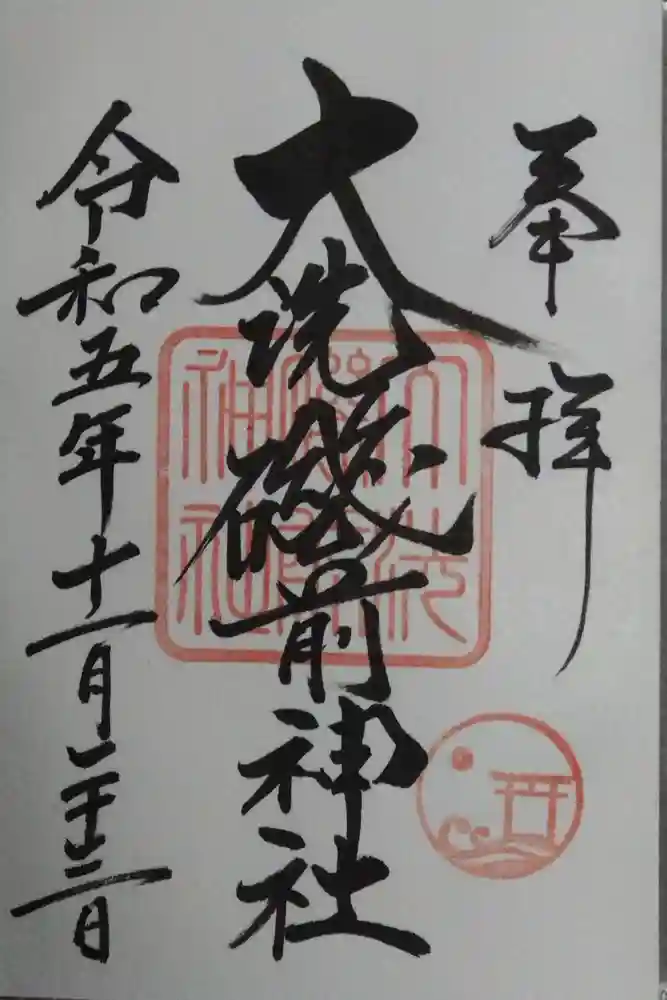 奉拝
大洗磯前神社
令和五年十一月二十三日
大洗
磯前
神社